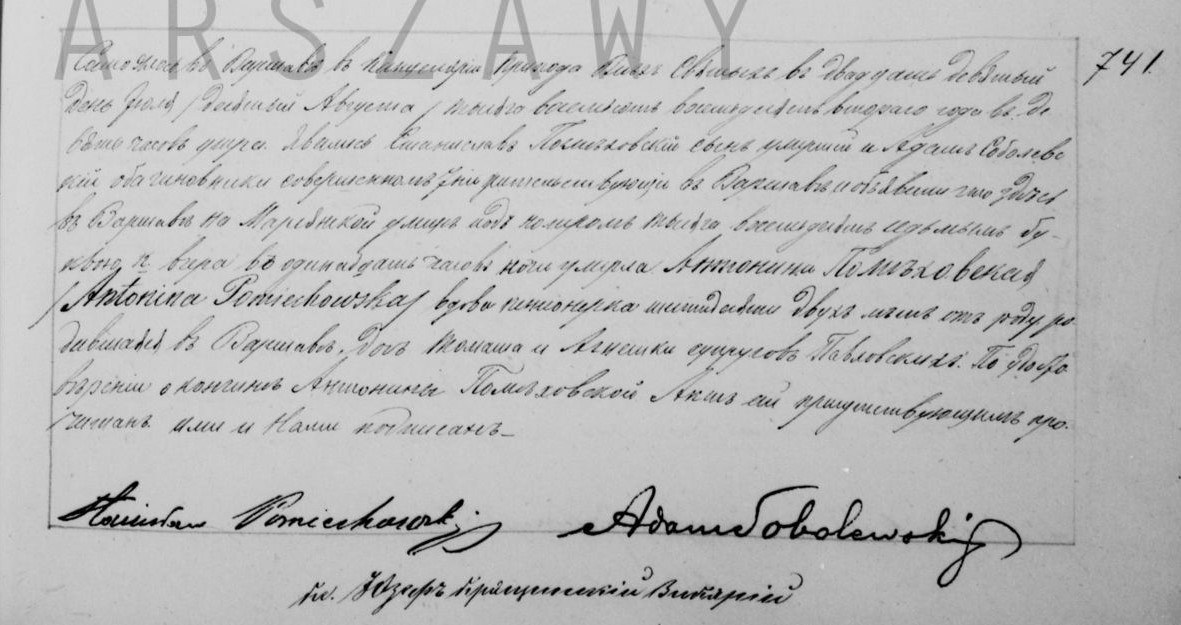 ARSZAWY
741.
Состоялось въ Варшавѣ въ Канцеляріи прихода Всѣхъ Святыхъ въ двадцать девятый
день Іюля /десятый Августа/ тысяча восемьсотъ восемьдесятъ втораго года въ де
вять часовъ утра. Явились Станиславъ Помѣховскій сынъ умершей и Адамъ Соболевс
кій оба чиновники совершеннолѣтніе жительствующіе въ Варшавѣ и объявили что здѣсь
въ Варшавѣ на Маріянской улицѣ подъ номеромъ тысяча восемьдесятъ седьмымъ бу-
квою вчера въ одинадцать часовъ ночи умерла Антонина Помѣховская
/Antonina Pomiechowska/ вдова пенсіонерка шестьдесяти двухъ лѣтъ отъ роду ро
дившаяся въ Варшавѣ, дочь Томаша и Агнешки супруговъ Павловскихъ. По удосто
вѣреніи о кончинѣ Антонины Помѣховской Актъ сей присутствующимъ про-
читанъ ими и Нами подписанъ_
Stanisław Pomiechowski Adam Sobolewski
кс. Юзефъ Викарій